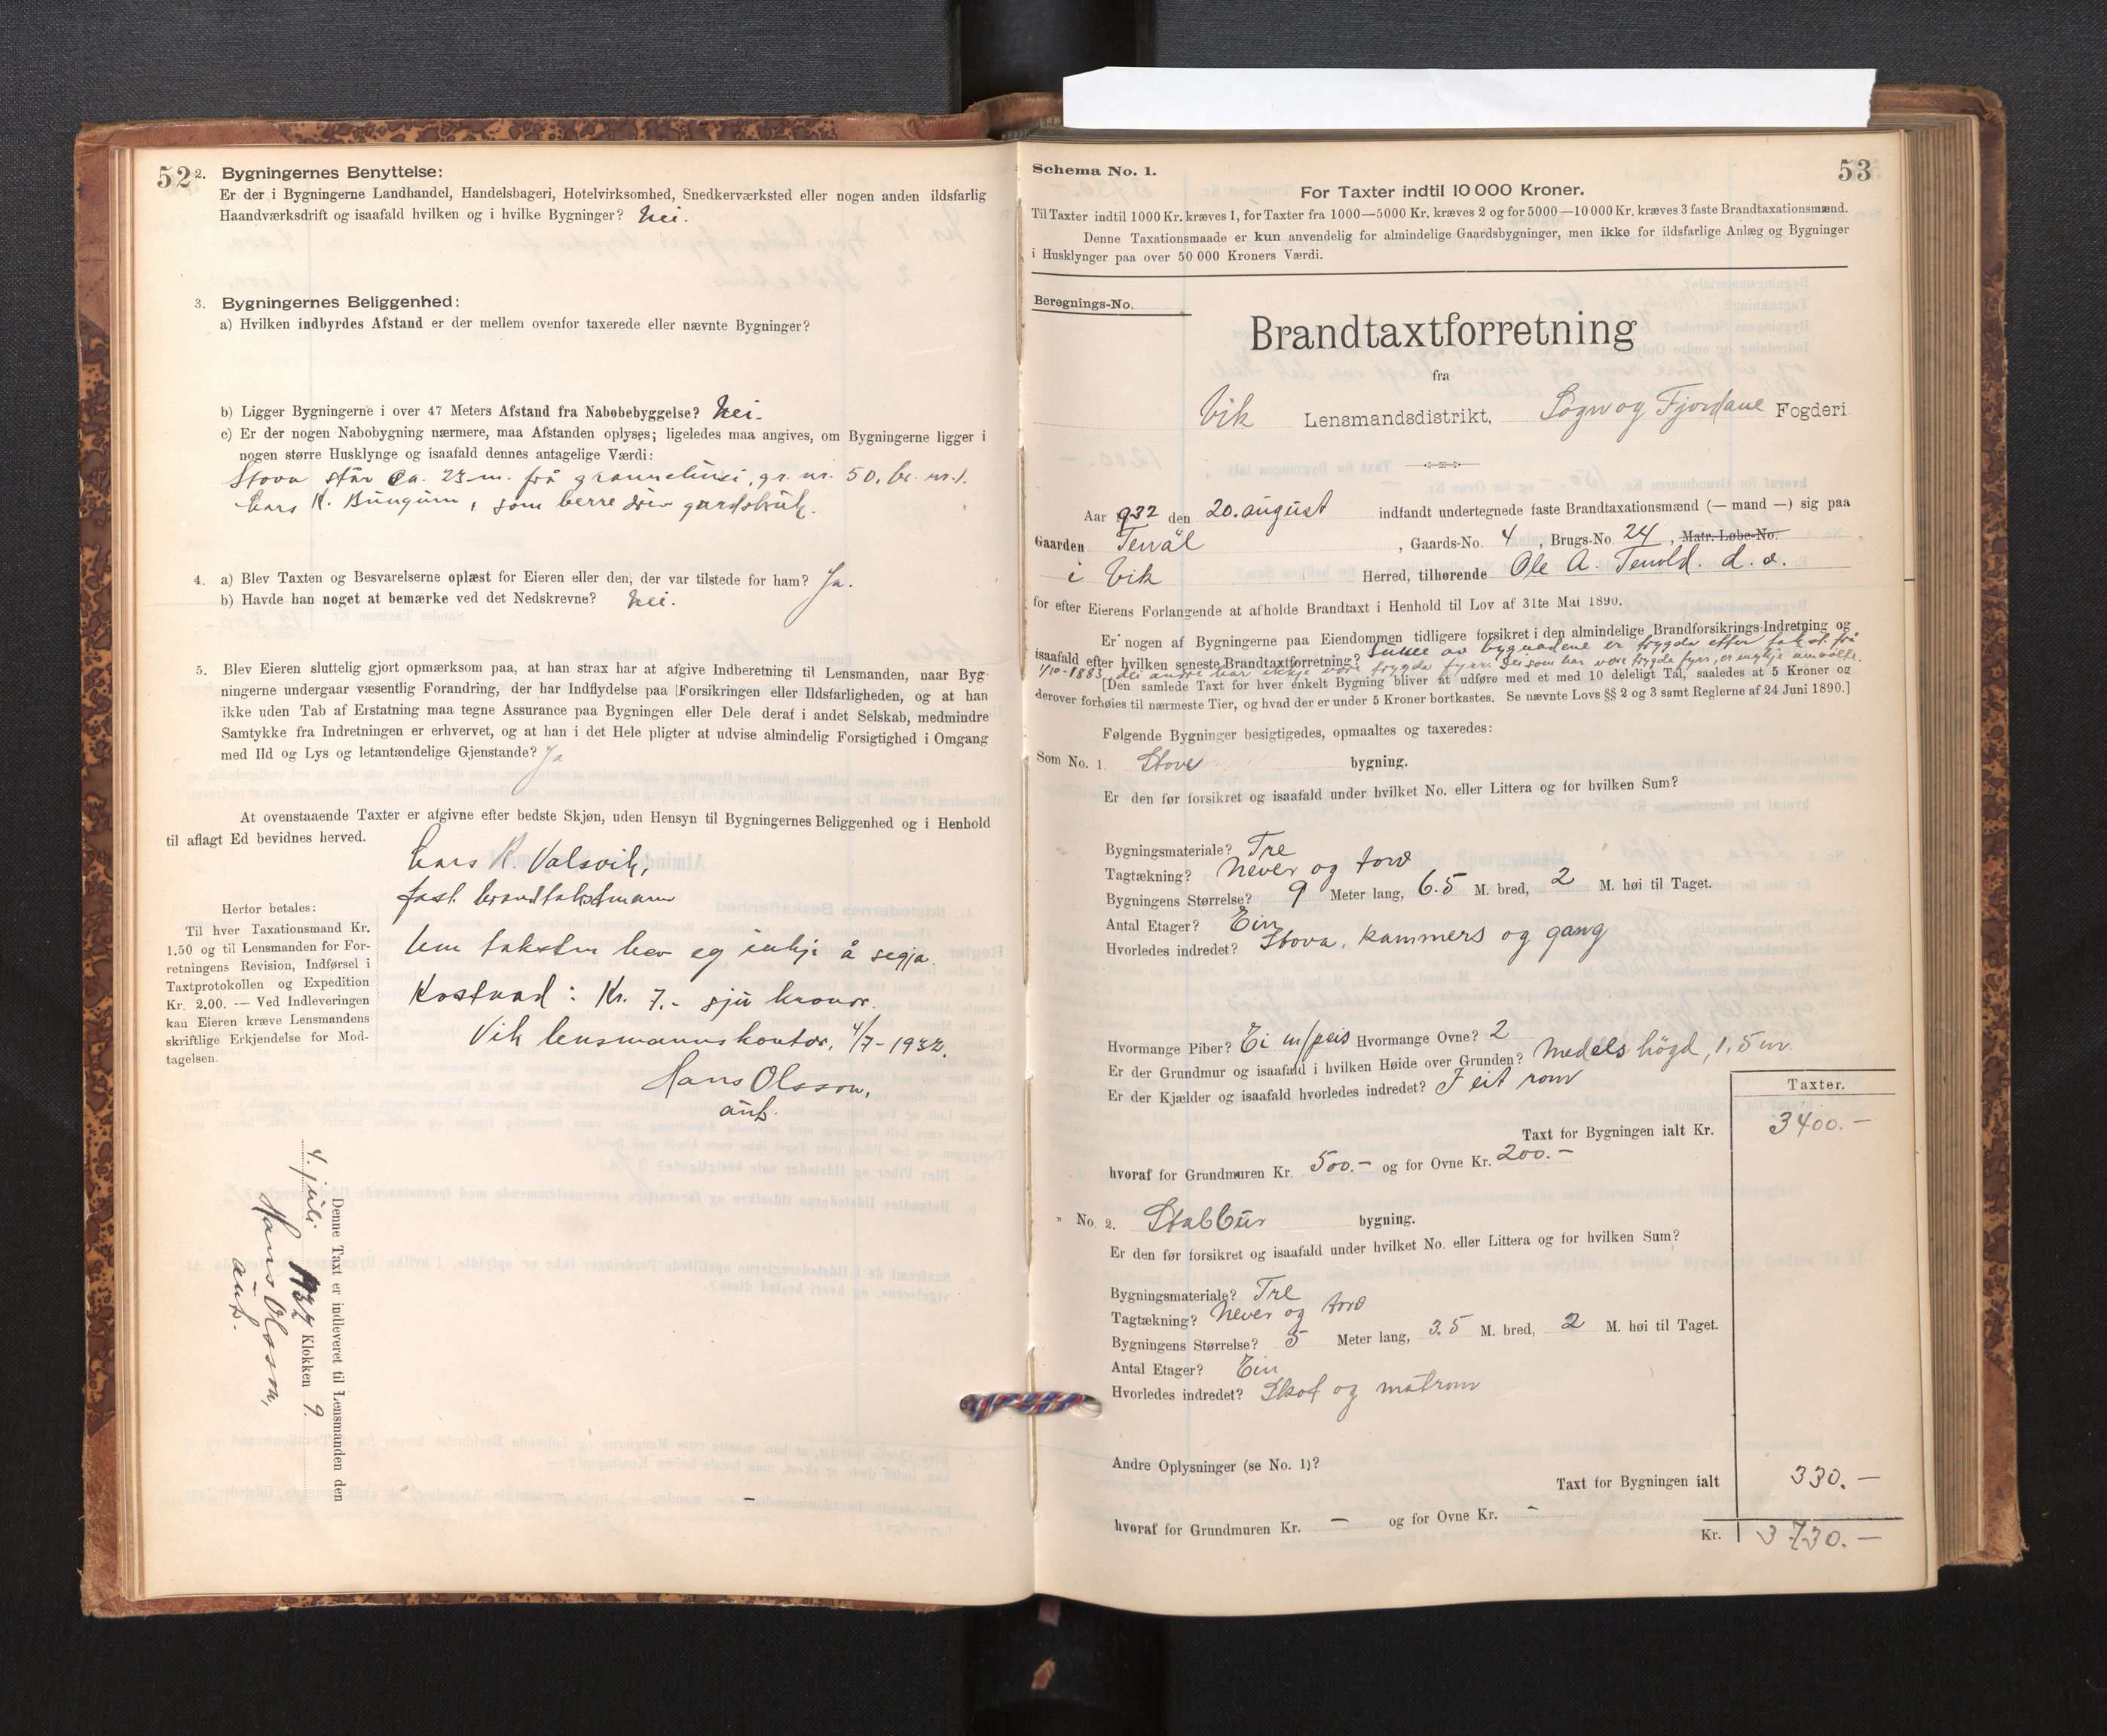 52
2. Bygningernes Benyttelse:
Er der i Bygningerne Landhandel, Handelsbageri, Hotelvirksomhed, Snedkerværksted eller nogen anden ildsfarlig
Haandværksdrift og isaafald hvilken og i hvilke Bygninger? Nei.
3. Bygningernes Beliggenhed:
a) Hvilken indbyrdes Afstand er der mellem ovenfor taxerede eller nævnte Bygninger?
b) Ligger Bygningerne i over 47 Meters Afstand fra Nabobebyggelse? Nei.
c) Er der nogen Nabobygning nærmere, maa Afstanden oplyses; ligeledes maa angives, om Bygningerne ligger i
nogen større Husklynge og isaafald dennes antagelige Værdi:
Stova står ca. 23 m. frå grannehusi, gr. nr. 50, br. nr. 1.
Lars K. Bungum, som berre driv gardsbruk.
4. a) Blev Taxten og Besvarelserne oplæst for Eieren eller den, der var tilstede for ham? Ja.
b) Havde han noget at bemærke ved det Nedskrevne? Nei.
5. Blev Eieren sluttelig gjort opmærksom paa, at han strax har at afgive Indberetning til Lensmanden, naar Byg-
ningerne undergaar væsentlig Forandring, der har Indflydelse paa Forsikringen eller Ildsfarligheden, og at han
ikke uden Tab af Erstatning maa tegne Assurance paa Bygningen eller Dele deraf i andet Selskab, medmindre
Samtykke fra Indretningen er erhvervet, og at han i det Hele pligter at udvise almindelig Forsigtighed i Omgang
med Ild og Lys og letantændelige Gjenstande? Ja
At ovenstaaende Taxter er afgivne efter bedste Skjøn, uden Hensyn til Bygningernes Beliggenhed og i Henhold
til aflagt Ed bevidnes herved.
Lars K. Valsvik,
fast brandtakstmann
Um taksten hev eg inkji å segja.
Kostnad: Kr. 7.- sju kronor.
Vik lensmannskontor, 4/7-1932.
Hans Olsson,
aut.
Herfor betales:
Til hver Taxationsmand Kr.
1.50 og til Lensmanden for For-
retningens Revision, Indførsel i
Taxtprotokollen og Expedition
Kr. 2.00. — Ved Indleveringen
kan Eieren kræve Lensmandens
skriftlige Erkjendelse for Mod-
tagelsen.
Denne Taxt er indleveret til Lensmanden den
4. juli 1932 Klokken 9.
Hans Olsson,
aut.
53
Schema No. 1.
For Taxter indtil 10 000 Kroner.
Til Taxter indtil 1000 Kr. kræves 1, for Taxter fra 1000—5000 Kr. kræves 2 og for 5000—10 000 Kr. kræves 3 faste Brandtaxationsmænd.
Denne Taxationsmaade er kun anvendelig for almindelige Gaardsbygninger, men ikke for ildsfarlige Anlæg og Bygninger
i Husklynger paa over 50 000 Kroners Værdi.
Beregnings-No.
Brandtaxtforretning
fra
Vik Lensmandsdistrikt, Sogn og Fjordane Fogderi
Aar 1932 den 20. august indfandt undertegnede faste Brandtaxationsmænd (— mand —) sig paa
Gaarden , Gaards-No. 4 , Brugs-No. 24 , Matr.-Løbe-No.
i Vik Herred, tilhørende Ole A. Tenold. d. e.
for efter Eierens Forlangende at afholde Brandtaxt i Henhold til Lov af 31te Mai 1890.
Er nogen af Bygningerne paa Eiendommen tidligere forsikret i den almindelige Brandforsikrings-Indretning og
isaafald efter hvilken seneste Brandtaxtforretning? Sume av bygnadene er trygda etter takst frå
1/10-1883, dei andre har ikkje vore trygda fyrr. Dei som har vore trygda fyrr, er mykje umvølte.
[Den samlede Taxt for hver enkelt Bygning bliver at udføre med et med 10 deleligt Tal, saaledes at 5 Kroner og
derover forhøies til nærmeste Tier, og hvad der er under 5 Kroner bortkastes. Se nævnte Lovs §§ 2 og 3 samt Reglerne af 24 Juni 1890.]
Følgende Bygninger besigtigedes, opmaaltes og taxeredes:
Som No. 1. Stove bygning.
Er den før forsikret og isaafald under hvilket No. eller Littera og for hvilken Sum?
Bygningsmateriale? Tre
Tagtækning? Never og torv
Bygningens Størrelse? 9 Meter lang, 6.5 M. bred, 2 M. høi til Taget.
Antal Etager? Ein
Hvorledes indredet? Stova, kammers og gang
Hvormange Piber? Ei m/peis Hvormange Ovne? 2
Er der Grundmur og isaafald i hvilken Høide over Grunden? Medels høgd, 1.5 m.
Er der Kjælder og isaafald hvorledes indredet? I eit rom
Taxter.
Taxt for Bygningen ialt Kr. 3400.-
hvoraf for Grundmuren Kr. 500.- og for Ovne Kr. 200.-
„ No. 2. Stabbur bygning.
Er den før forsikret og isaafald under hvilket No. eller Littera og for hvilken Sum?
Bygningsmateriale? Tre
Tagtækning? Never og torv
Bygningens Størrelse? 5 Meter lang, 3.5 M. bred, 2 M. høi til Taget.
Antal Etager? Ein
Hvorledes indredet? Skot og matrom
Andre Oplysninger (se No. 1)?
Taxt for Bygningen ialt 330.-
hvoraf for Grundmuren Kr. - og for Ovne Kr. -
Kr. 3730.-